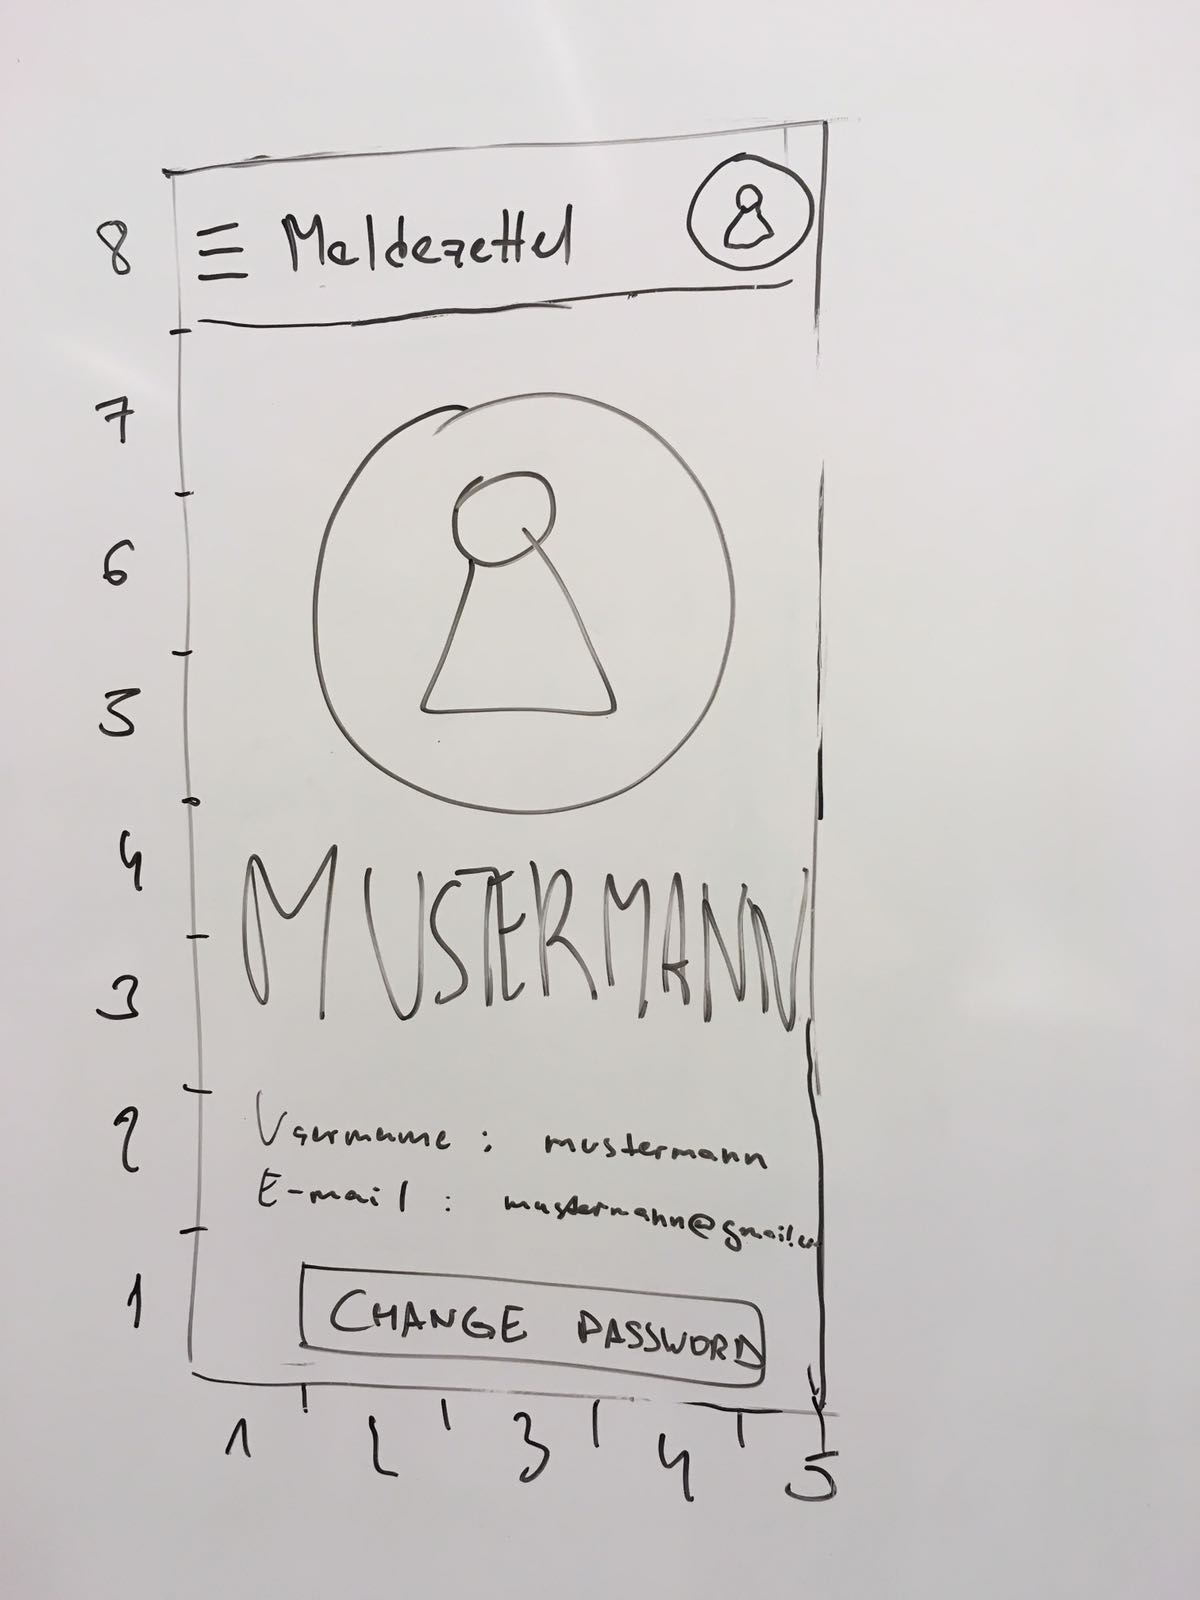 8 Meldezettel
7
6
5
4 MUSTERMANN
3
2 Username : mustermann
E-mail : mustermann@gmail.co
1 CHANGE PASSWORD
1 2 3 4 5